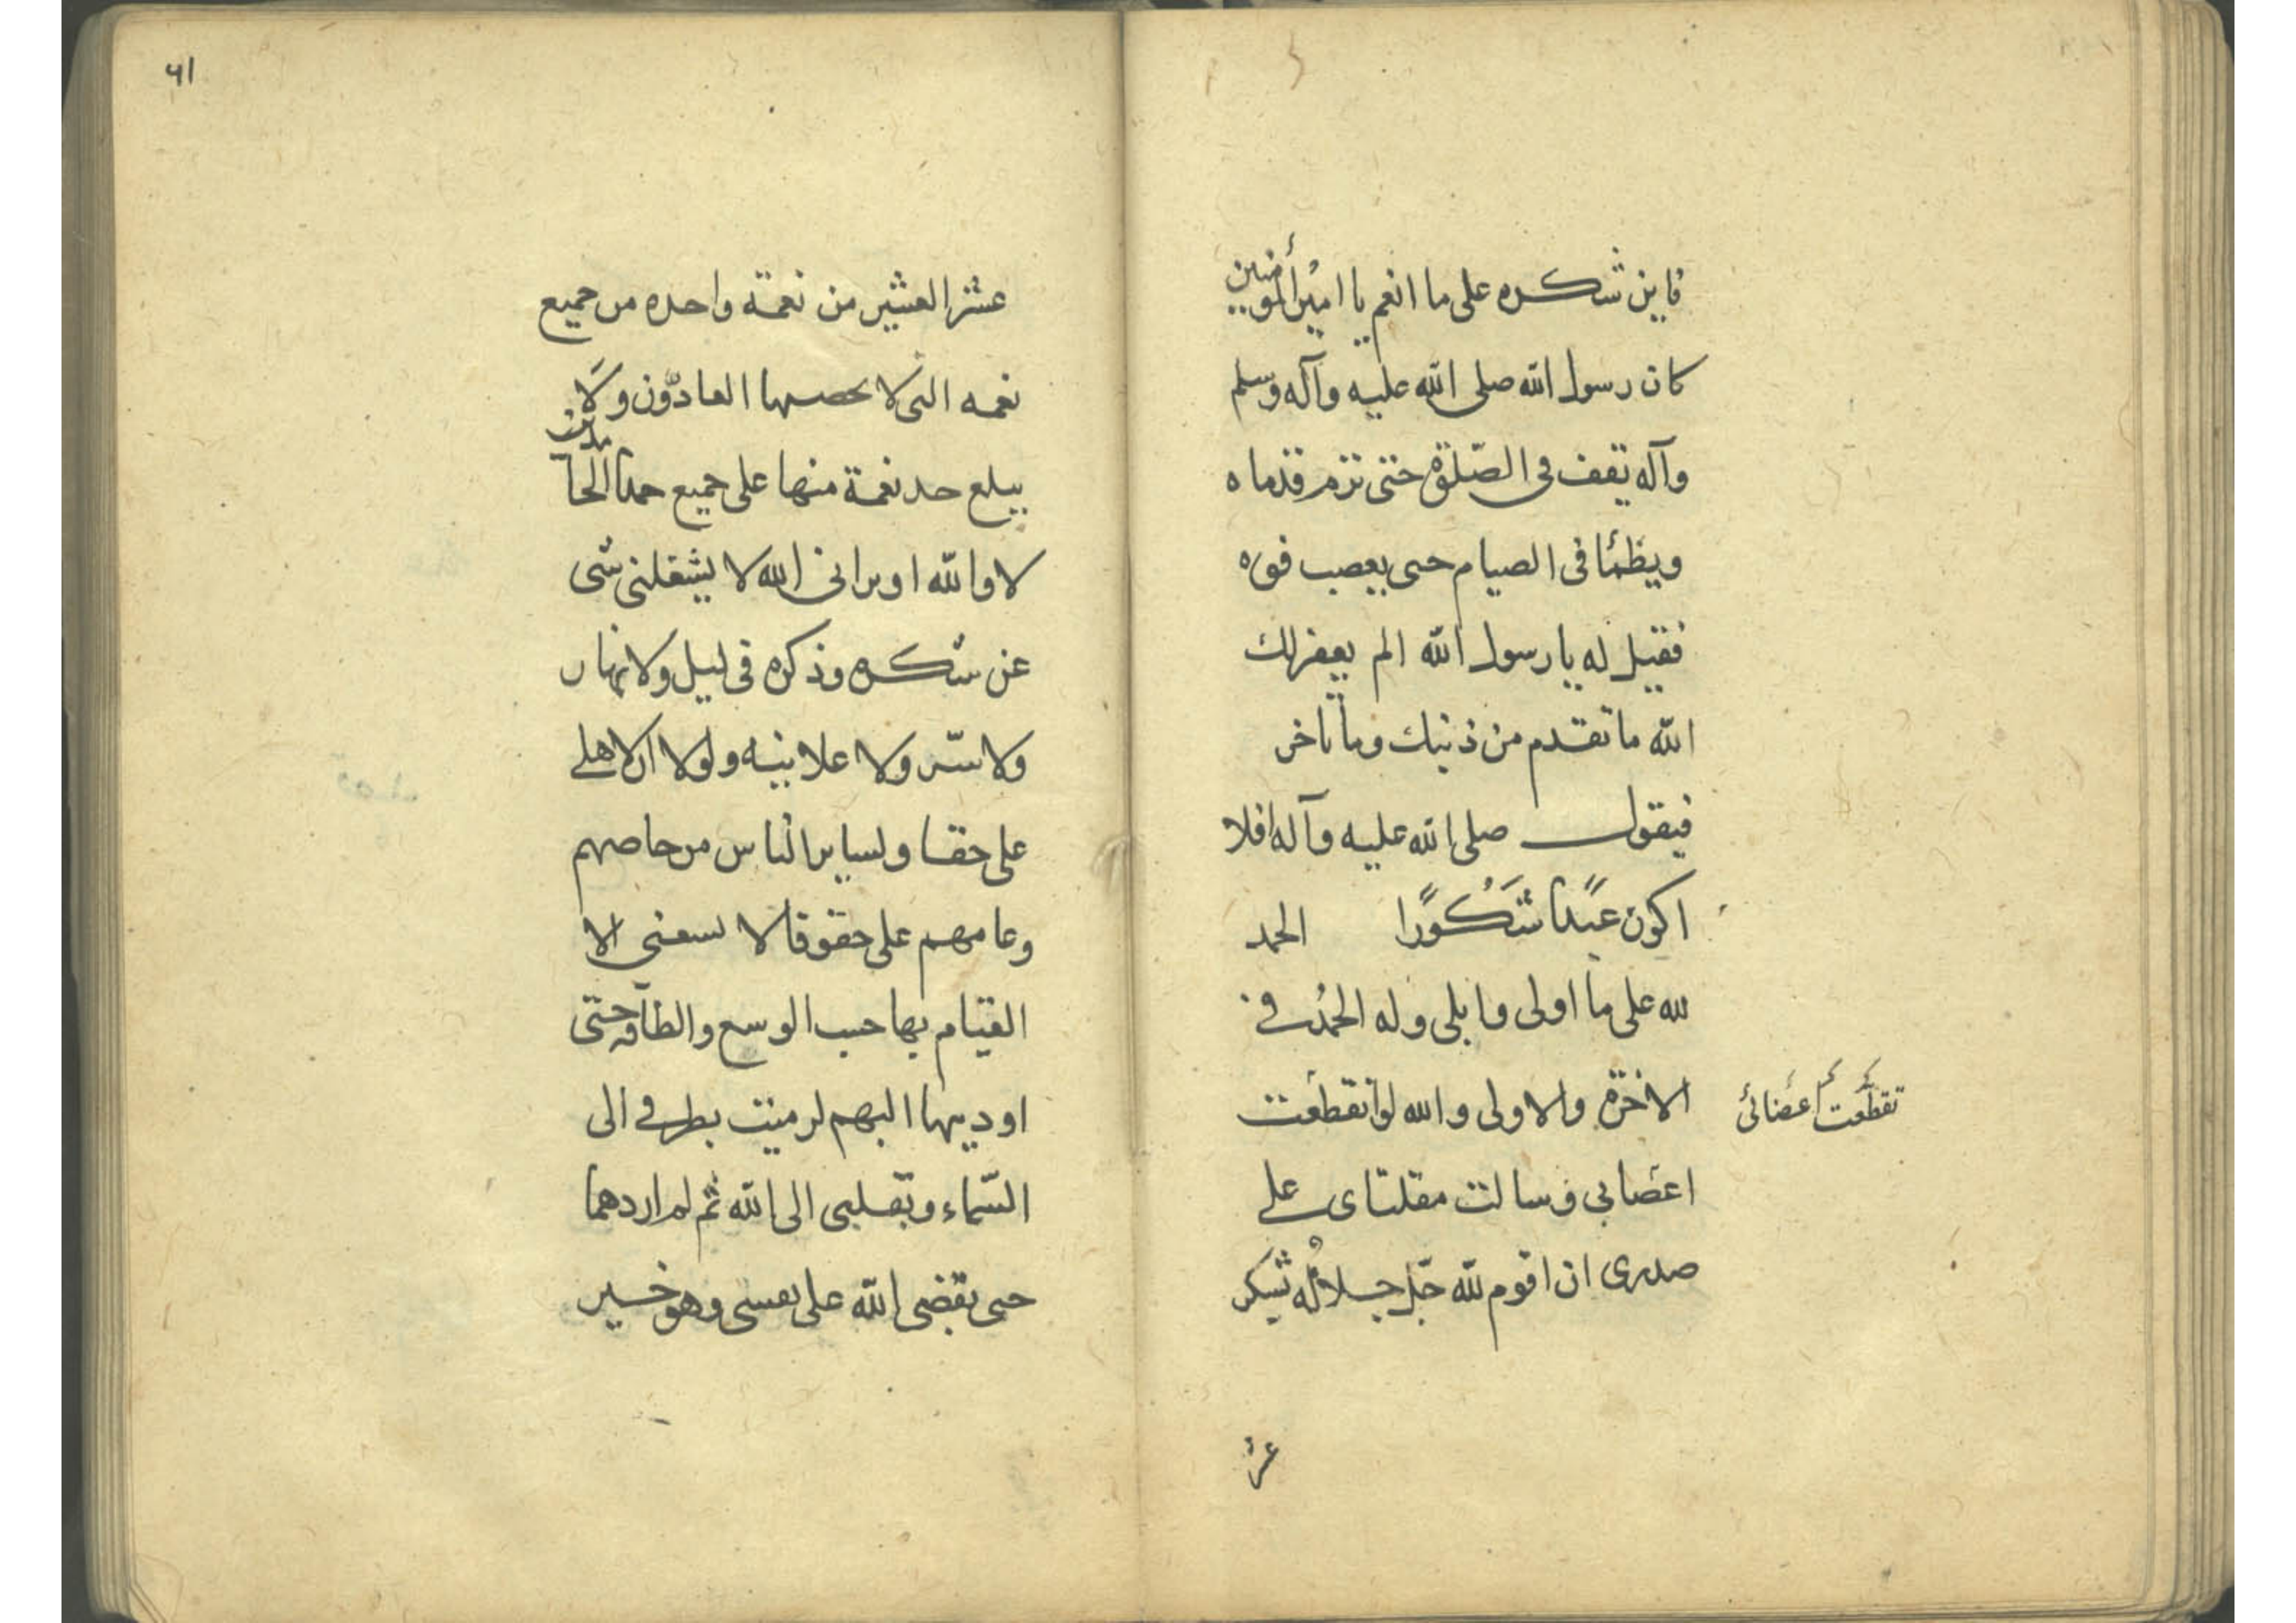 فاين شكره على ما انعم يا امير المؤمنين
كان رسول الله صلى الله عليه وآله وسلم
وآله يقف في الصّلوة حتى ترم قدماه
ويظمأ في الصيام حتى يعصب فوه
فقيل له يا رسول الله الم يغفر لك
الله ما تقدم من ذنبك وما تاخر
فيقول صلى الله عليه وآله افلا
اكون عبدًا شَكُورًا الحمد
لله على ما اولى وابلى وله الحمدُ في
الاخرة والاولى والله لو تقطعت
تقطّعت أعضائى
اعضايى وسالت مقلتاى على
صدرى ان اقوم لله جلّ جلالُه بشكر
عشر
٦١
عشر العشير من نعمة واحده من جميع
نعمه التى لا يحصيها العادّون ولا
يبلغ حد نعمة منها على جميع حمد الحامدين
لا والله او يرانى الله لا يشغلنى شى
عن شكره وذكره فى ليل ولا نهار
ولا سّر ولا علانيه ولولا ان لاهلى
على حقا ولساير الناس من خاصهم
وعامهم على حقوقا لا يسعنى الا
القيام بها حسب الوسع والطاقه حتى
اوديها اليهم لرميت بطرفى الى
السّماء وبقلبى الى الله ثم لم ارددهما
حتى يقضى الله على نفسى وهو خير